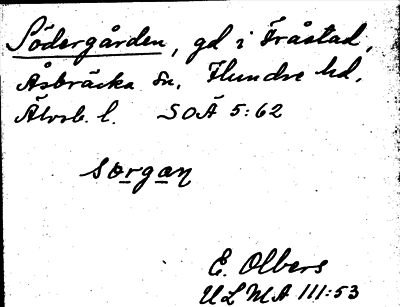 Södergården, gd i Fråstad,
Åsbräcka sn, Flundre hd,
Älvsb. l. SOÄ 5:62
sörgan
E. Olbers
ULMA 111:53